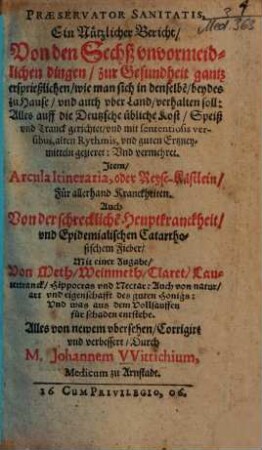 PRÆSERVATOR SANITATIS.
Ein Nützlicher Bericht/
Von den Sechß vnvormeid-
lichen dingen/ zur Gesundheit gantz
ersprießlichen/ wie man sich in denselbē/ beydes
zu Hause/ vnd auch vber Land/ verhalten soll:
Alles auff die Deutzsche übliche Kost/ Speiß
vnd Tranck gerichtet/ vnd mit sententiosis ver-
sibus, alten Rythmis, vnd guten Ertzney-
mitteln gezieret: Vnd vermehret.
Item/
Arcula Itineraria, oder Reyse-Kästlein/
Für allerhand Kranckheiten.
Auch
Von der schrecklichē Heuptkranckheit/
vnd Epidemialischen Catartho-
sischem Fieber/
Mit einer Zugabe/
Von Meth/ Weinmeth/ Claret/ Lau-
tertranck/ Hippocras vnd Nectar: Auch von natur/
art vnd eigenschafft des guten Honigs:
Vnd was aus dem Vollsauffen
für schaden entstehe.
Alles von newem vbersehen/ Corrigirt
vnd verbessert/ Durch
M. Johannem VVittichium,
Medicum zu Arnstadt.
16 CUM PRIVILEGIO, 06.
Med. 363